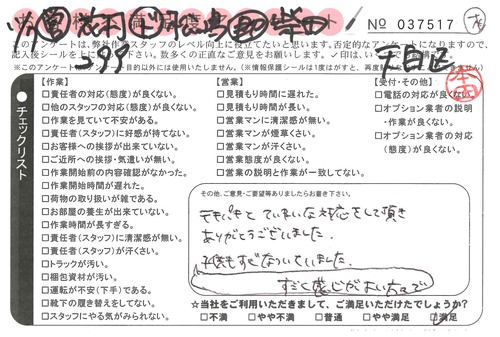 Nº 037517
このアンケートは、弊社作業スタッフのレベル向上に役立てたいと思います。否定的なアンケートになりますので、
記入後シールをして下さい。数多くのご正直なご意見をお願いします。✓印は、
※このアンケート 目的以外には使用いたしません。(※情報保護シールは1度はがすと、再度
千田区
チェックリスト
【作業】
□責任者の対応(態度)が良くない。
□他のスタッフの対応(態度)が良くない。
□作業を見ていて不安がある。
□責任者(スタッフ)に好感が持てない。
□お客様への挨拶が出来ていない。
□ご近所への挨拶・気遣いが無い。
□作業開始前の内容確認がなかった。
□作業開始時間が遅れた。
□荷物の取り扱いが雑である。
□お部屋の養生が出来ていない。
□作業時間が長すぎる。
□責任者(スタッフ)に清潔感が無い。
□責任者(スタッフ)が汗くさい。
□トラックが汚い。
□梱包資材が汚い。
□運転が不安(下手)である。
□靴下の履き替えをしてない。
□スタッフにやる気がみられない。
【営業】
□見積もり時間に遅れた。
□見積もり時間が長い。
□営業マンに清潔感が無い。
□営業マンが煙草くさい。
□営業マンが汗くさい。
□営業態度が良くない。
□営業の説明と作業が一致してない。
【受付・その他】
□電話の対応が良くない。
□オプション業者の説明
・作業が良くない。
□オプション業者の対応
(態度)が良くない。
その他、ご意見・ご要望等ありましたらお書き下さい。
てきぱきとていねいな対応をして頂き
ありがとうございました。
子供もすごくなついていました。
すごく感じがよい方で
☆当社をご利用いただきまして、ご満足いただけたでしょうか?
□不満 □やや不満 □普通 □やや満足 □満足